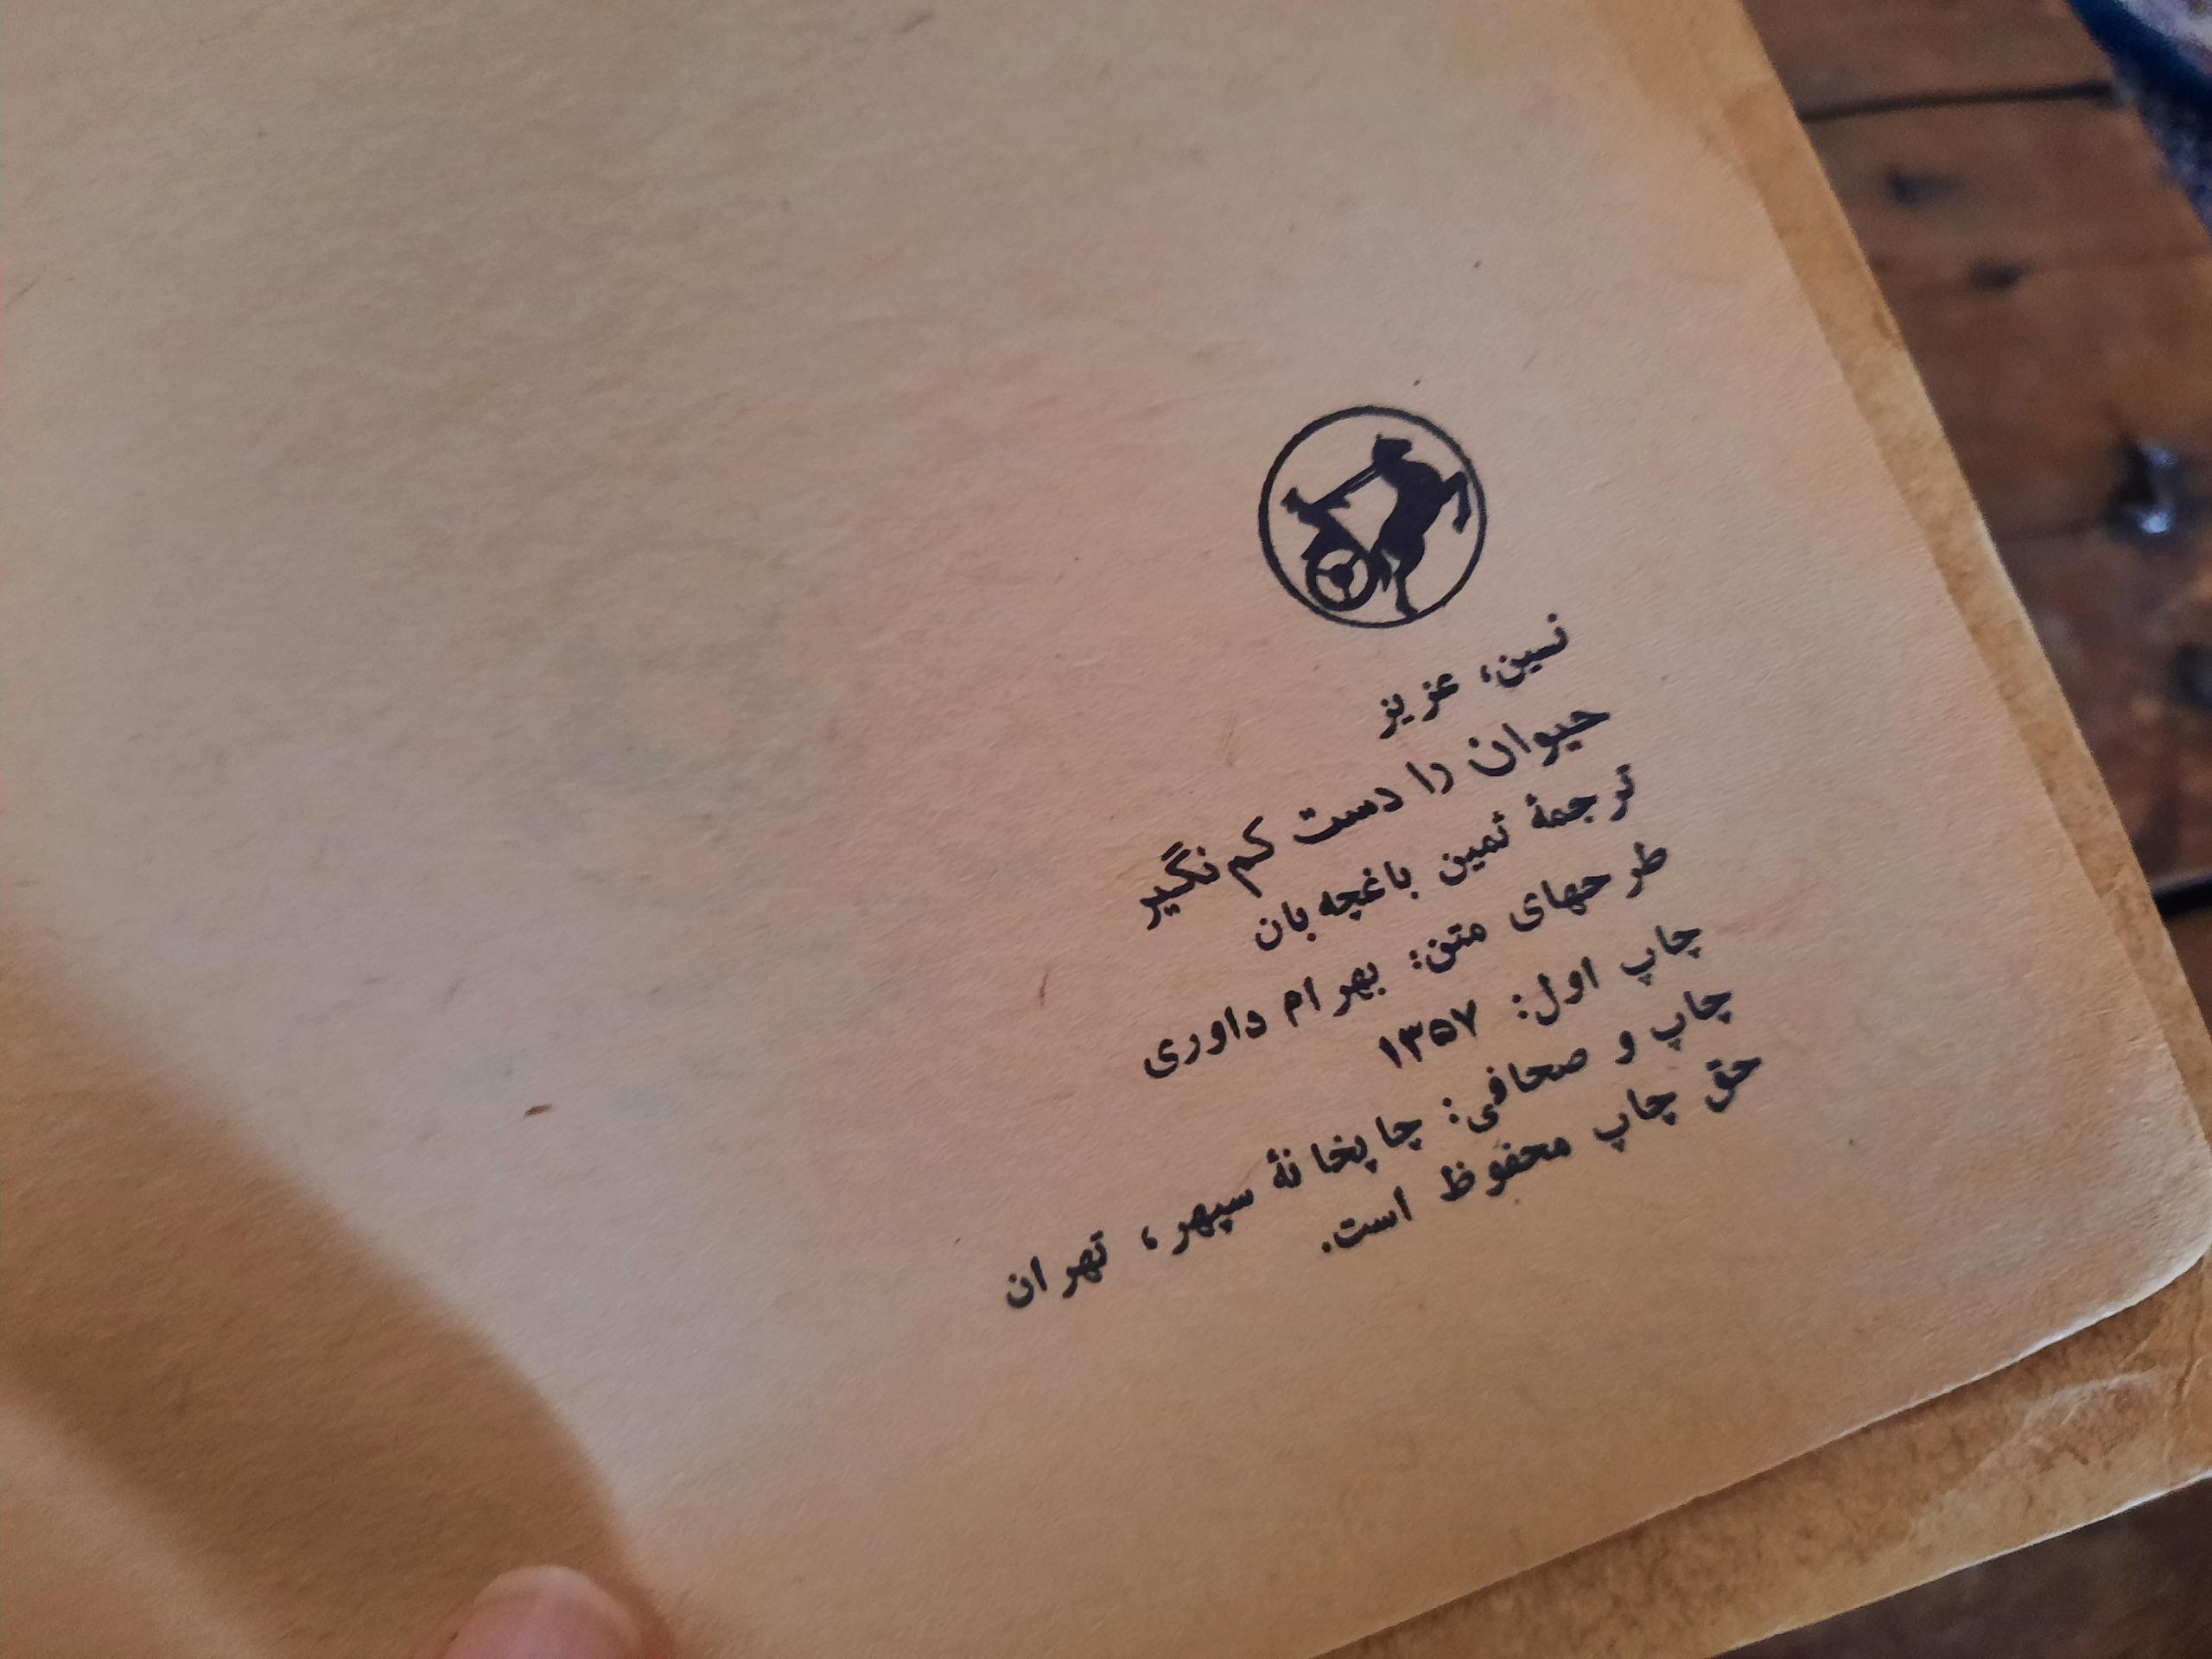 نسین، عزیز
حیوان را دست کم نگیر
ترجمهٔ ثمین باغچه‌بان
طرحهای متن: بهرام داوری
چاپ اول: ۱۳۵۷
چاپ و صحافی: چاپخانهٔ سپهر، تهران
حق چاپ محفوظ است.